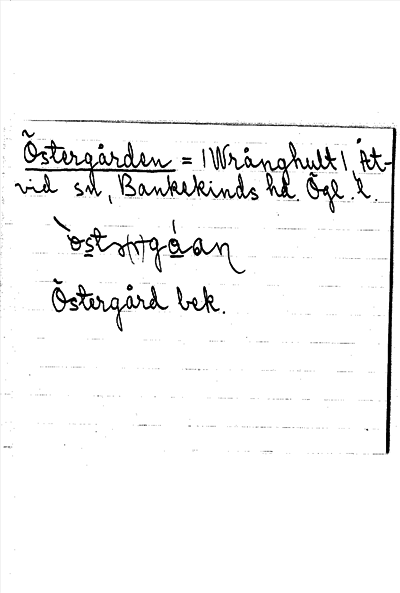 Östergården = /Wrånghult/ Åt-
vid sn, Bankekinds hd. Ögl. l.
Östergård bek.